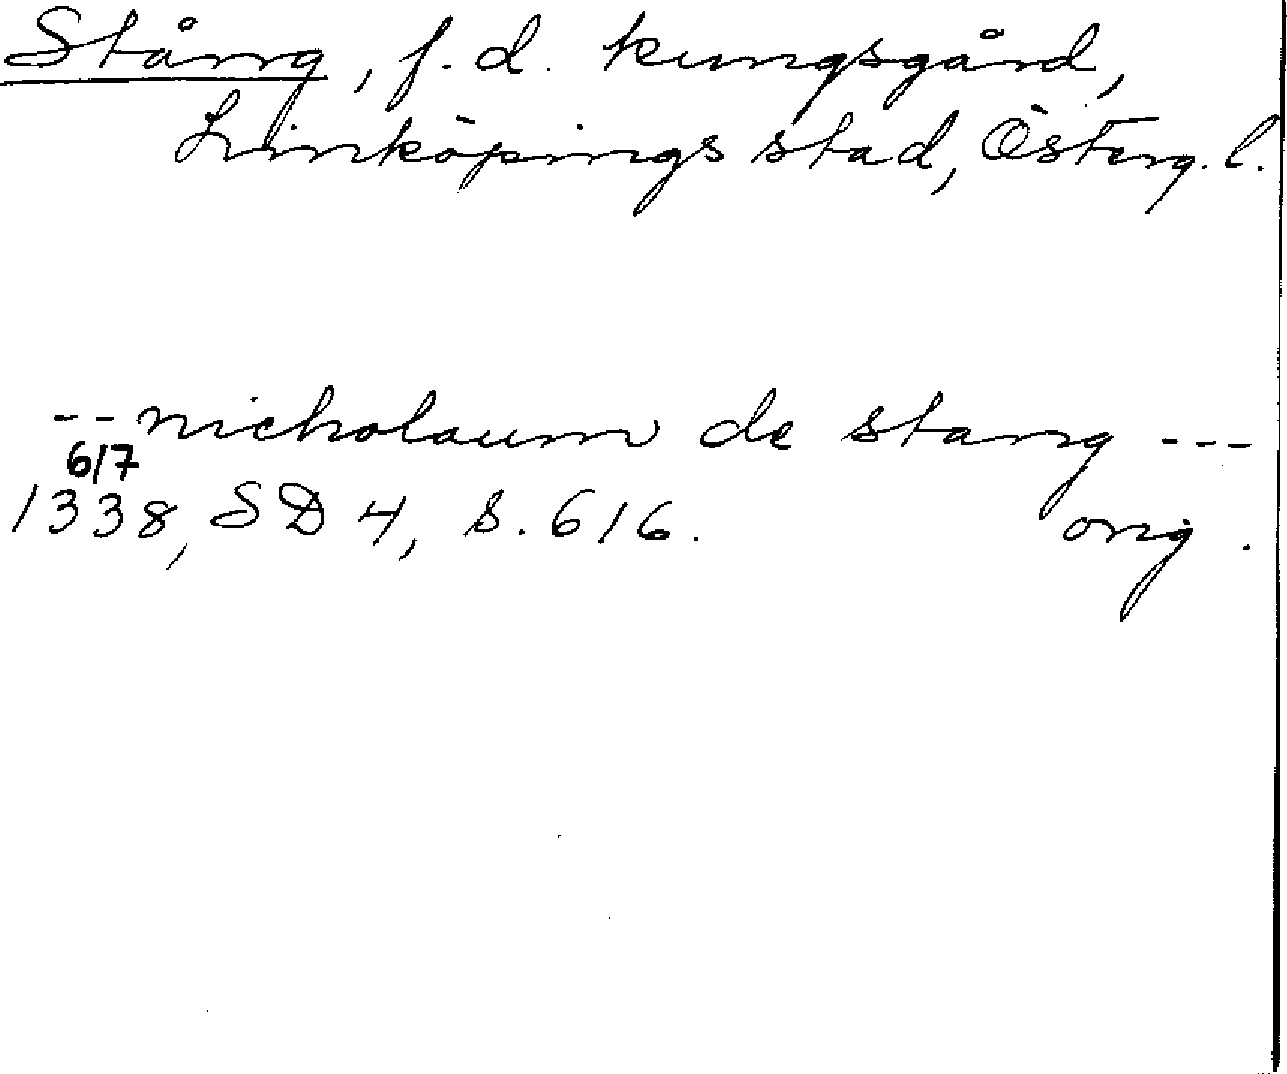 Stång, f.d. kungsgård,
Linköpings stad, Österg. l.
-- nicholaum de stang ---
6/7
1338, SD 4, s. 616. orig.